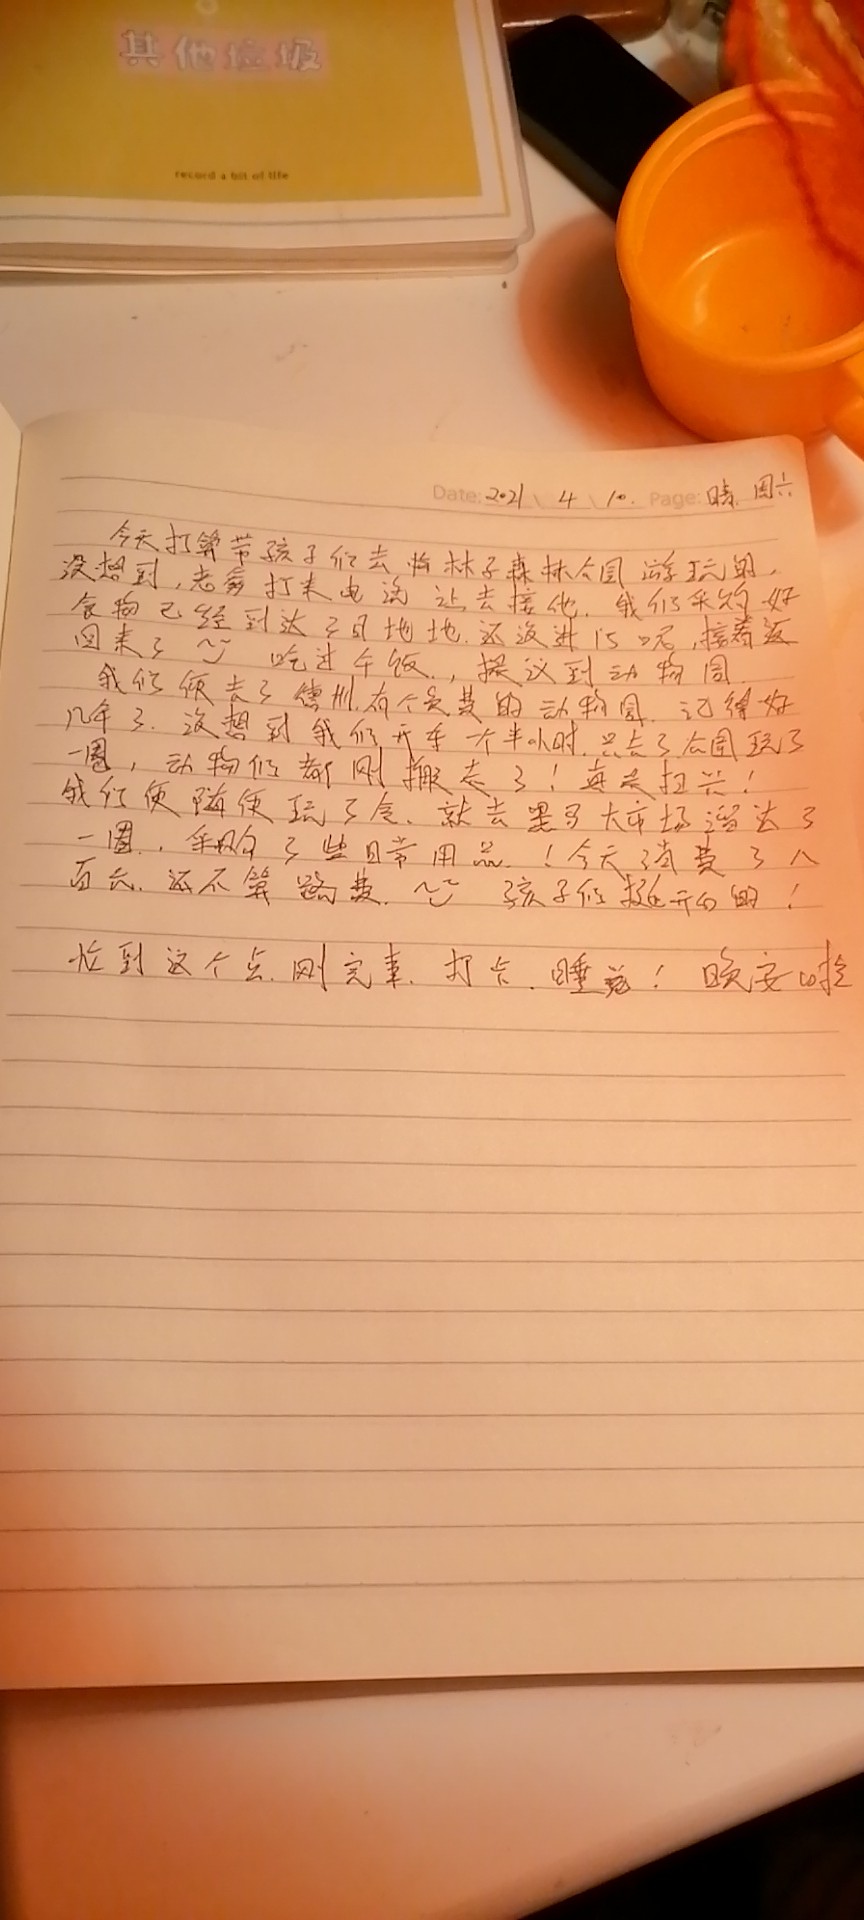 其他垃圾
record a bit of life
Date: 2021 \ 4 \ 10. Page: 晴. 周六
今天打算带孩子们去 林子森林公园 游玩的,
没想到,老爹打来电话 让去接他. 我们采购好
食物已经到达了目的地.还没进15呢,接着返
回来了 吃过午饭., 提议到动物园.
我们便去了德州.有个免费的动物园. 记得好
几年了. 没想到我们开车一个半小时.只去了公园玩了
一圈, 动物们都刚搬走了! 真是扫兴!
我们便随便玩了会. 就去黑马大市场溜达了
一圈., 采购了些日常用品. ! 今天消费了八
百六. 还不算路费. 孩子们挺开心的!
忙到这个点.刚完事. 打卡. 睡觉! 晚安啦